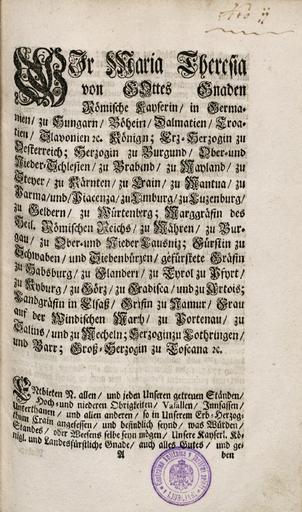 WIr Maria Theresia
von GOttes Gnaden
Römische Kayserin/ in Germa-
nien/ zu Hungarn/ Böheim/ Dalmatien/ Croa-
tien/ Slavonien ꝛc. Königin; Ertz-Herzogin zu
Oesterreich; Herzogin zu Burgund/ Ober-und
Nieder-Schlesien/ zu Braband/ zu Mayland/ zu
Steyer/ zu Kärnten/ zu Crain/ zu Mantua/ zu
Parma/und Piacenza/ zu Limburg/ zu Luzenburg/
zu Geldern/ zu Würtenberg; Marggräfin des
Heil. Römischen Reichs/ zu Mähren/ zu Bur-
gau/ zu Ober-und Nieder Lausniz; Fürstin zu
Schwaben/ und Siebenbürgen/ gefürstete Gräfin
zu Habsburg/ zu Flandern/ zu Tyrol zu Pfyrt/
zu Kyburg/ zu Görz/ zu Gradisca/und zu Artois;
Landgräfin in Elsaß/ Gräfin zu Namur/ Frau
auf der Windischen March/ zu Portenau/ zu
Salins/ und zu Mecheln; Herzogin zu Lothringen/
und Barr; Groß-Herzogin zu Toscana ꝛc.
ENtbieten N. allen/ und jeden Unseren getreuen Ständen/
Hoch-und niederen Obrigkeiten/ Vasallen/ Innsassen/
Unterthanen/ und allen anderen/ so in Unserem Erb-Herzog-
thum Crain angesessen/ und befindlich seynd/ was Würden/
Standes/ oder Weesens selbe seyn mögen/ Unsere Kayserl. Kö-
nigl. und Landesfürstliche Gnade/ auch alles Gutes/ und ge-
A ben
LJUBLJANI